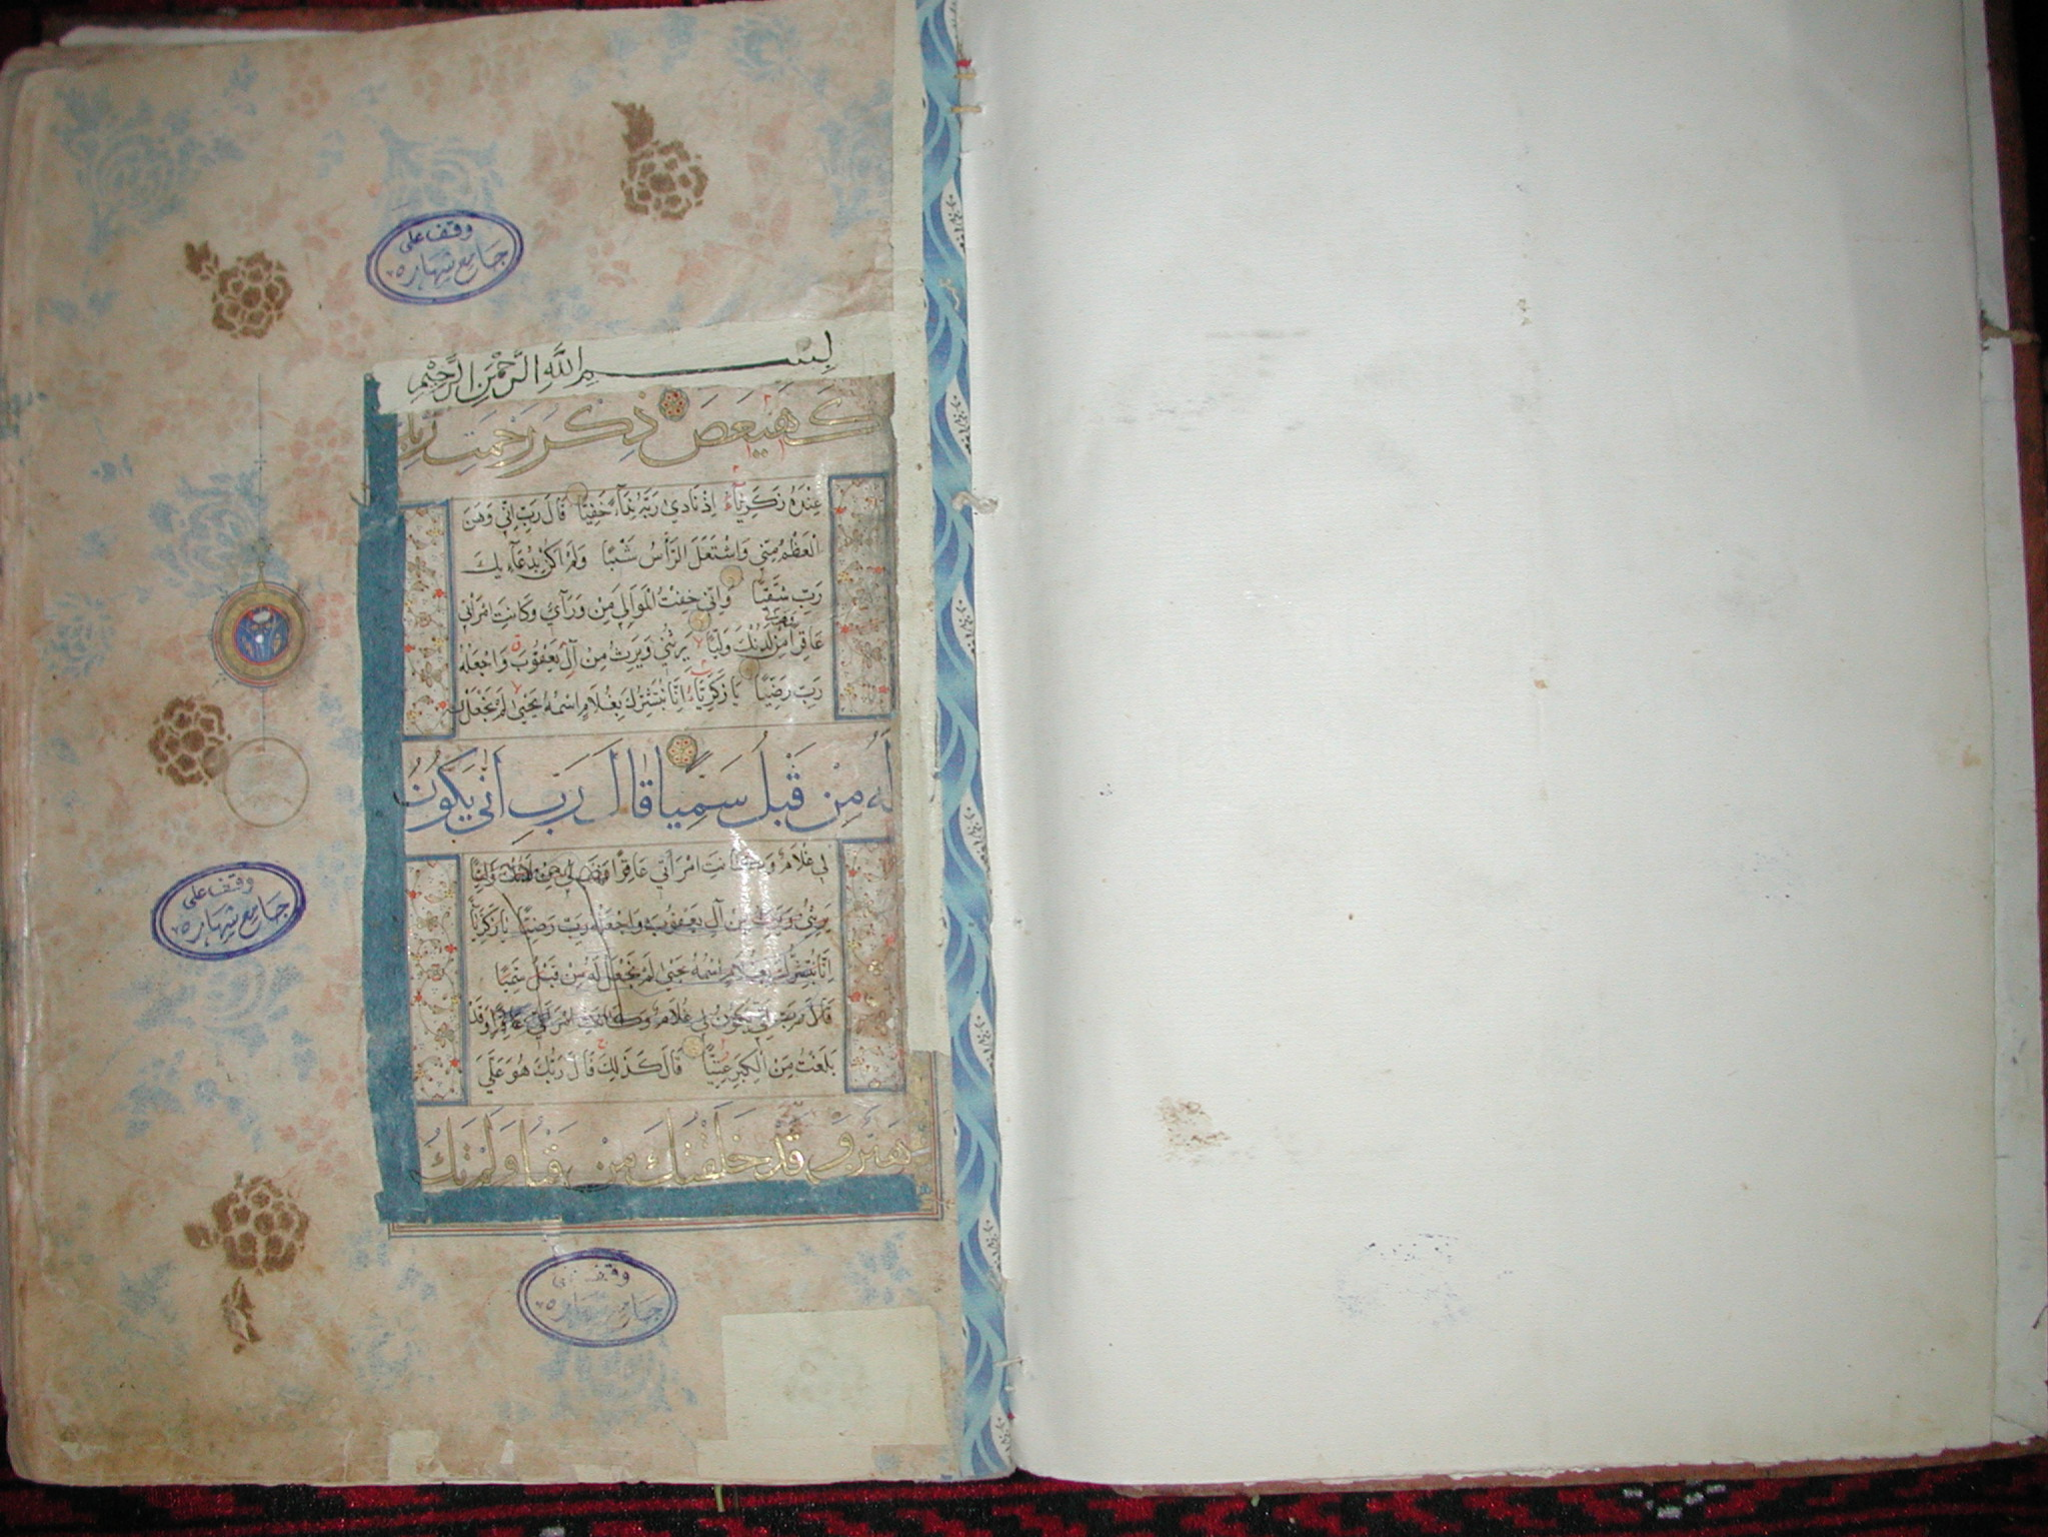 وقف على
جامع شهاره
بسم الله الرحمن الرحيم
كهيعص ذكر رحمت ربك
عبده زكرياء اذ نادى ربه نداء خفيا قال رب اني وهن
العظم مني واشتعل الرأس شيبا ولم اكن بدعاءيك
رب شقيا واني خفت الموالي من وراءي وكانت امرأتي
عاقرا من لدنك وليا يرثني ويرث من آل يعقوب واجعله
رب رضيا يا زكرياء انا نبشرك بغلام اسمه يحيى لم نجعل
له من قبل سميا قال رب انى يكون
لي غلام وكانت امرأتي عاقرا من لدنك وليا
يرثني ويرث من آل يعقوب واجعله رب رضيا يا زكريا
انا نبشرك بغلام اسمه يحيى لم نجعل له من قبل سميا
قال رب انى يكون لي غلام وكانت امرأتي عاقرا وقد
بلغت من الكبر عتيا قال كذلك قال ربك هو علي
هين وقد خلقتك من قبل ولم تك
وقف على
جامع شهاره
وقف
جامع شهاره